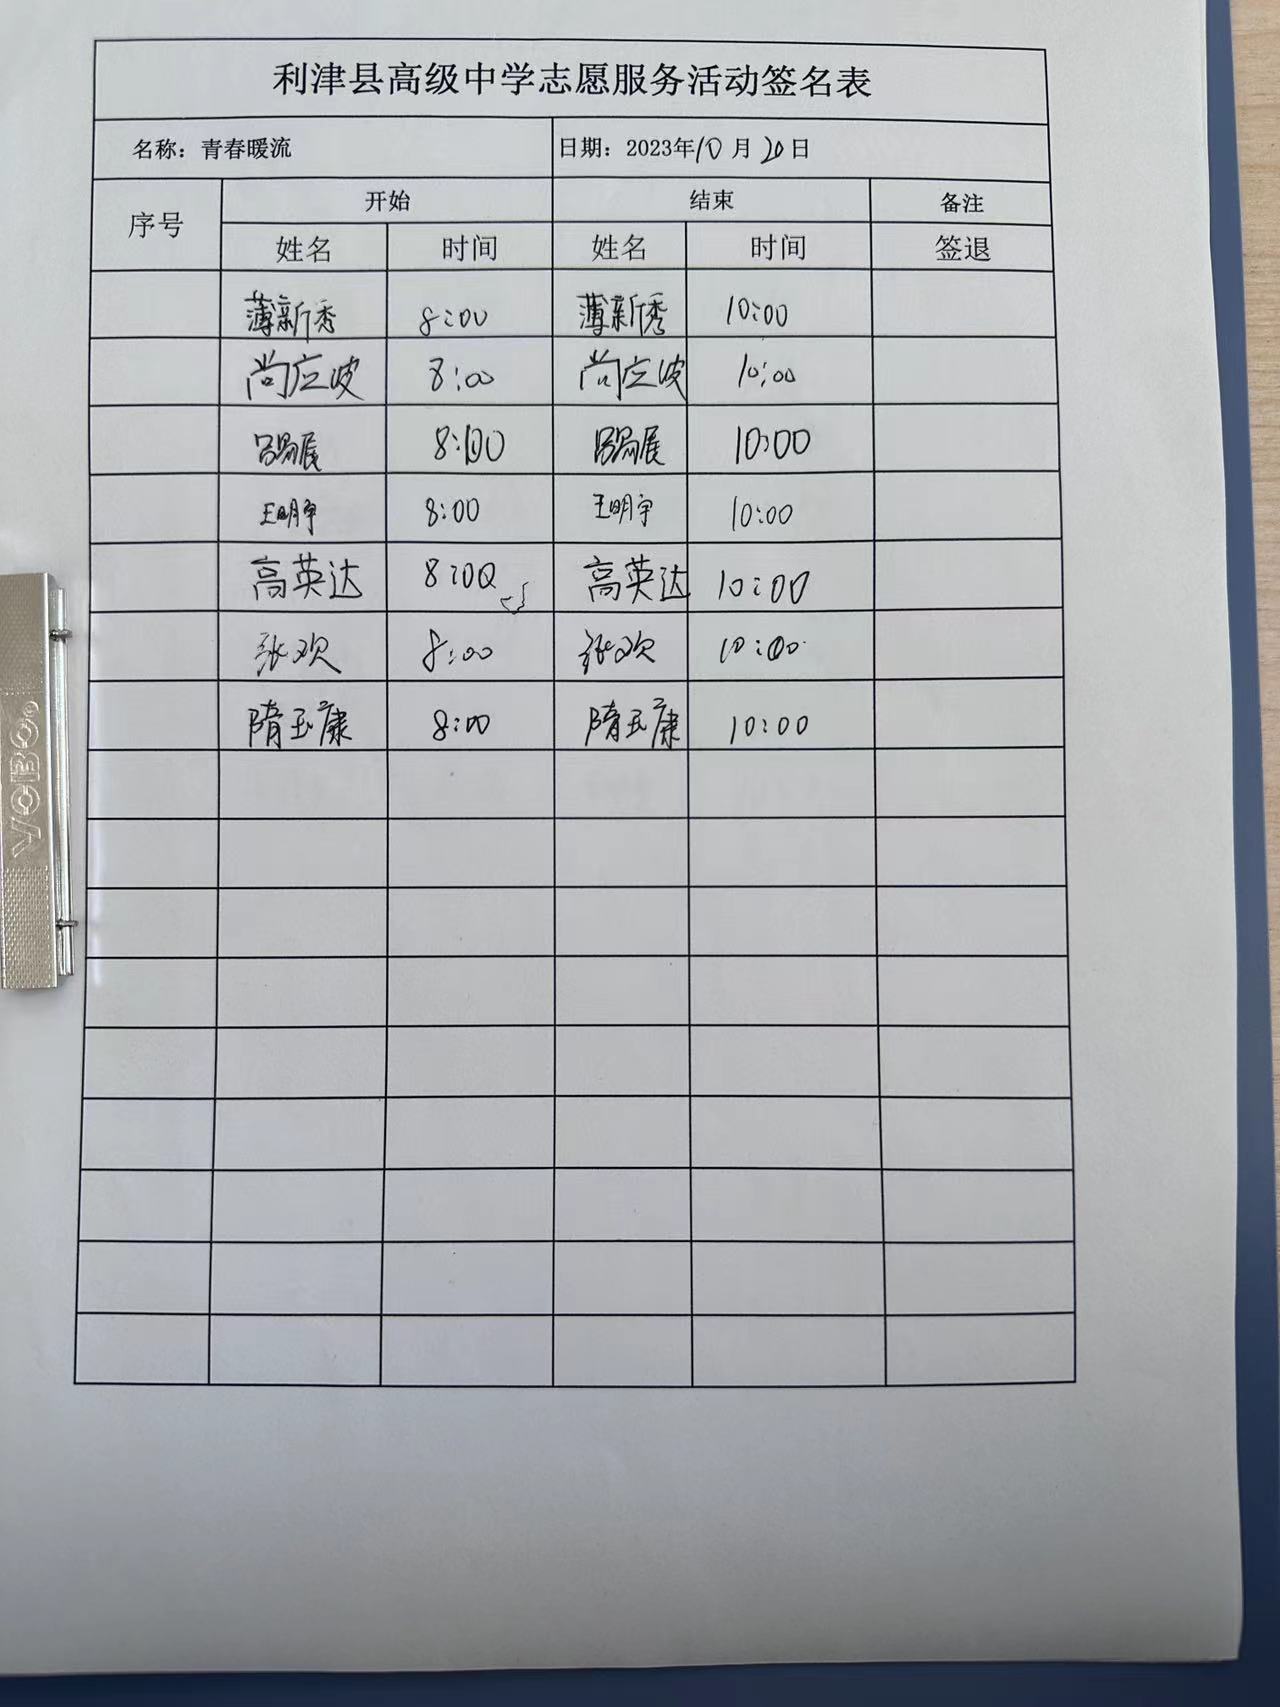 利津县高级中学志愿服务活动签名表
名称：青春暖流 日期：2023年10月20日
序号 开始 结束 备注
姓名 时间 姓名 时间 签退
薄新秀 8:00 薄新秀 10:00
尚应波 8:00 尚应波 10:00
8:00 10:00
王明宇 8:00 王明宇 10:00
高英达 8:00 高英达 10:00
张欢 8:00 张欢 10:00
隋玉康 8:00 隋玉康 10:00
YOBO